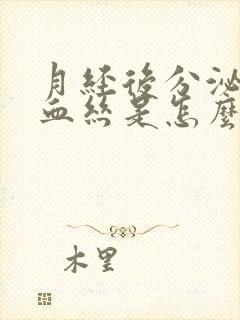 月經後分泌
血絲是怎麼
木里